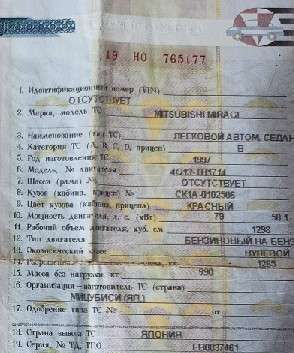 19 НО 765177
1. Идентификационный номер (VIN)
ОТСУТСТВУЕТ
2. Марка, модель ТС MITSUBISHI MIRAGE
3. Наименование (тип ТС) ЛЕГКОВОЙ АВТОМ. СЕДАН
4. Категория ТС (А, В, С, D, прицеп) В
5. Год изготовления ТС 1997
6. Модель, № двигателя
7. Шасси (рама) № ОТСУТСТВУЕТ
8. Кузов (кабина, прицеп) № СК1А-0102506
9. Цвет кузова (кабины, прицепа) КРАСНЫЙ
10. Мощность двигателя, л. с. (кВт)
11. Рабочий объем двигателя, куб. см 1298
12. Тип двигателя БЕНЗИНОВЫЙ НА БЕНЗ
13. Экологический класс НУЛЕВОЙ
14. Разрешенная 1265
15. Масса без нагрузки, кг 990
16. Организация-изготовитель ТС (страна)
МИЦУБИСИ (ЯП.)
17. Одобрение типа ТС № от
Страна вывоза ТС ЯПОНИЯ
Серия, № ТД, ТПО